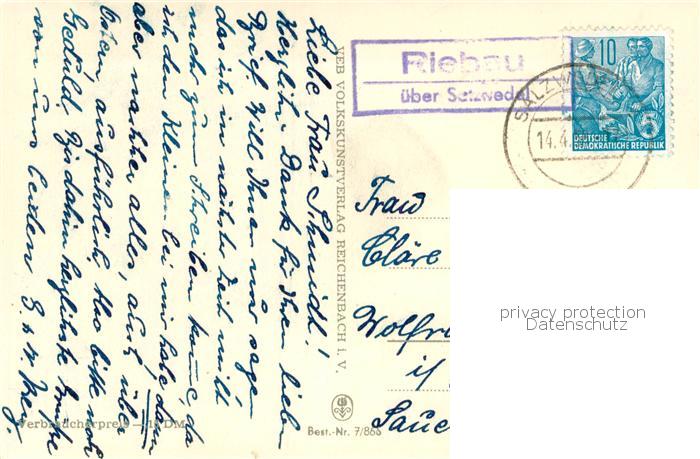 Liebe Frau Schmidt!
Herzlichen Dank für Ihren lieben
Brief. Will Ihnen nur sagen
das ich in nächster Zeit nicht
mehr zum Schreiben komme, da
ich den Kleinen bei mir habe, dann
aber nachher alles, auch über
ausführlich. Also bitte noch
Geduld. Bis dahin herzlichste Grüße
von uns beiden
Verbraucherpreis — DM
VEB VOLKSKUNSTVERLAG REICHENBACH i. V.
Best.-Nr. 7/868
Riebau
über Salzwedel
SALZWEDEL
14.4.
10
5
DEUTSCHE
DEMOKRATISCHE REPUBLIK
Frau
Cläre
privacy protection
Datenschutz